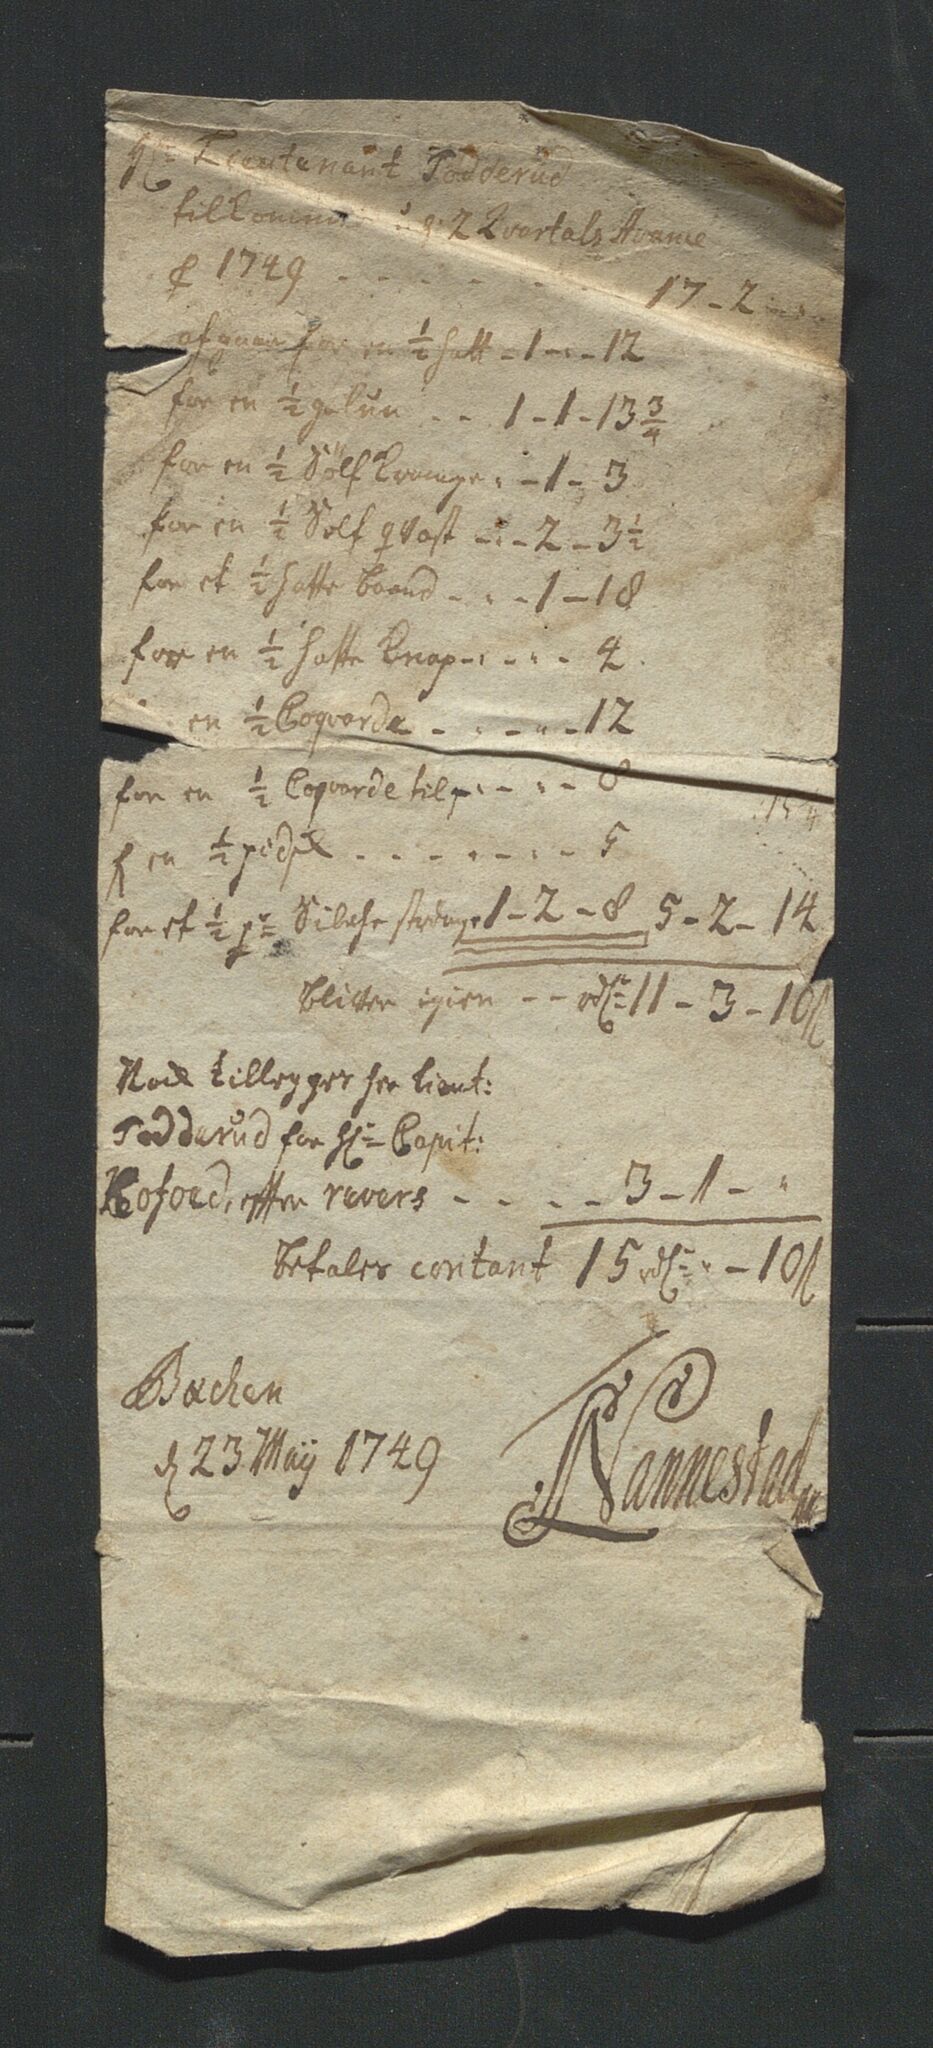 Hr: Lieutenant Todderud
tilkommer 2 Qvartals Avance
p 1749 - - - - - - 17 - 2 - "
afgaar for en ½ hatt - 1 - " - 12
for en ½ galun - - 1 - 1 - 13 ¾
for en ½ Sölf krampe " - 1 - 3
for en ½ Sölf qvast - " - 2 - 3½
for et ½ hatte baand - " - 1 - 18
for en ½ hatte knap - " - " - 4
en ½ Coqvarde - " - " - 12
for en ½ Coqvarde til " - " - 8
f en ½ - - - " - " - 5
for et ½ pr Silche strömpe 1 - 2 - 8 5 - 2 - 14
bliver igien - - rdlr 11 - 3 - 10 ß
Nock tillegges her Lieut:
Todderud for Hr Capit:
Kofoed, efter revers - - - - 3 - 1 - "
betales contant 15 rdlr " - 10 ß
Bachen
d 23 Maij 1749 Nannestad